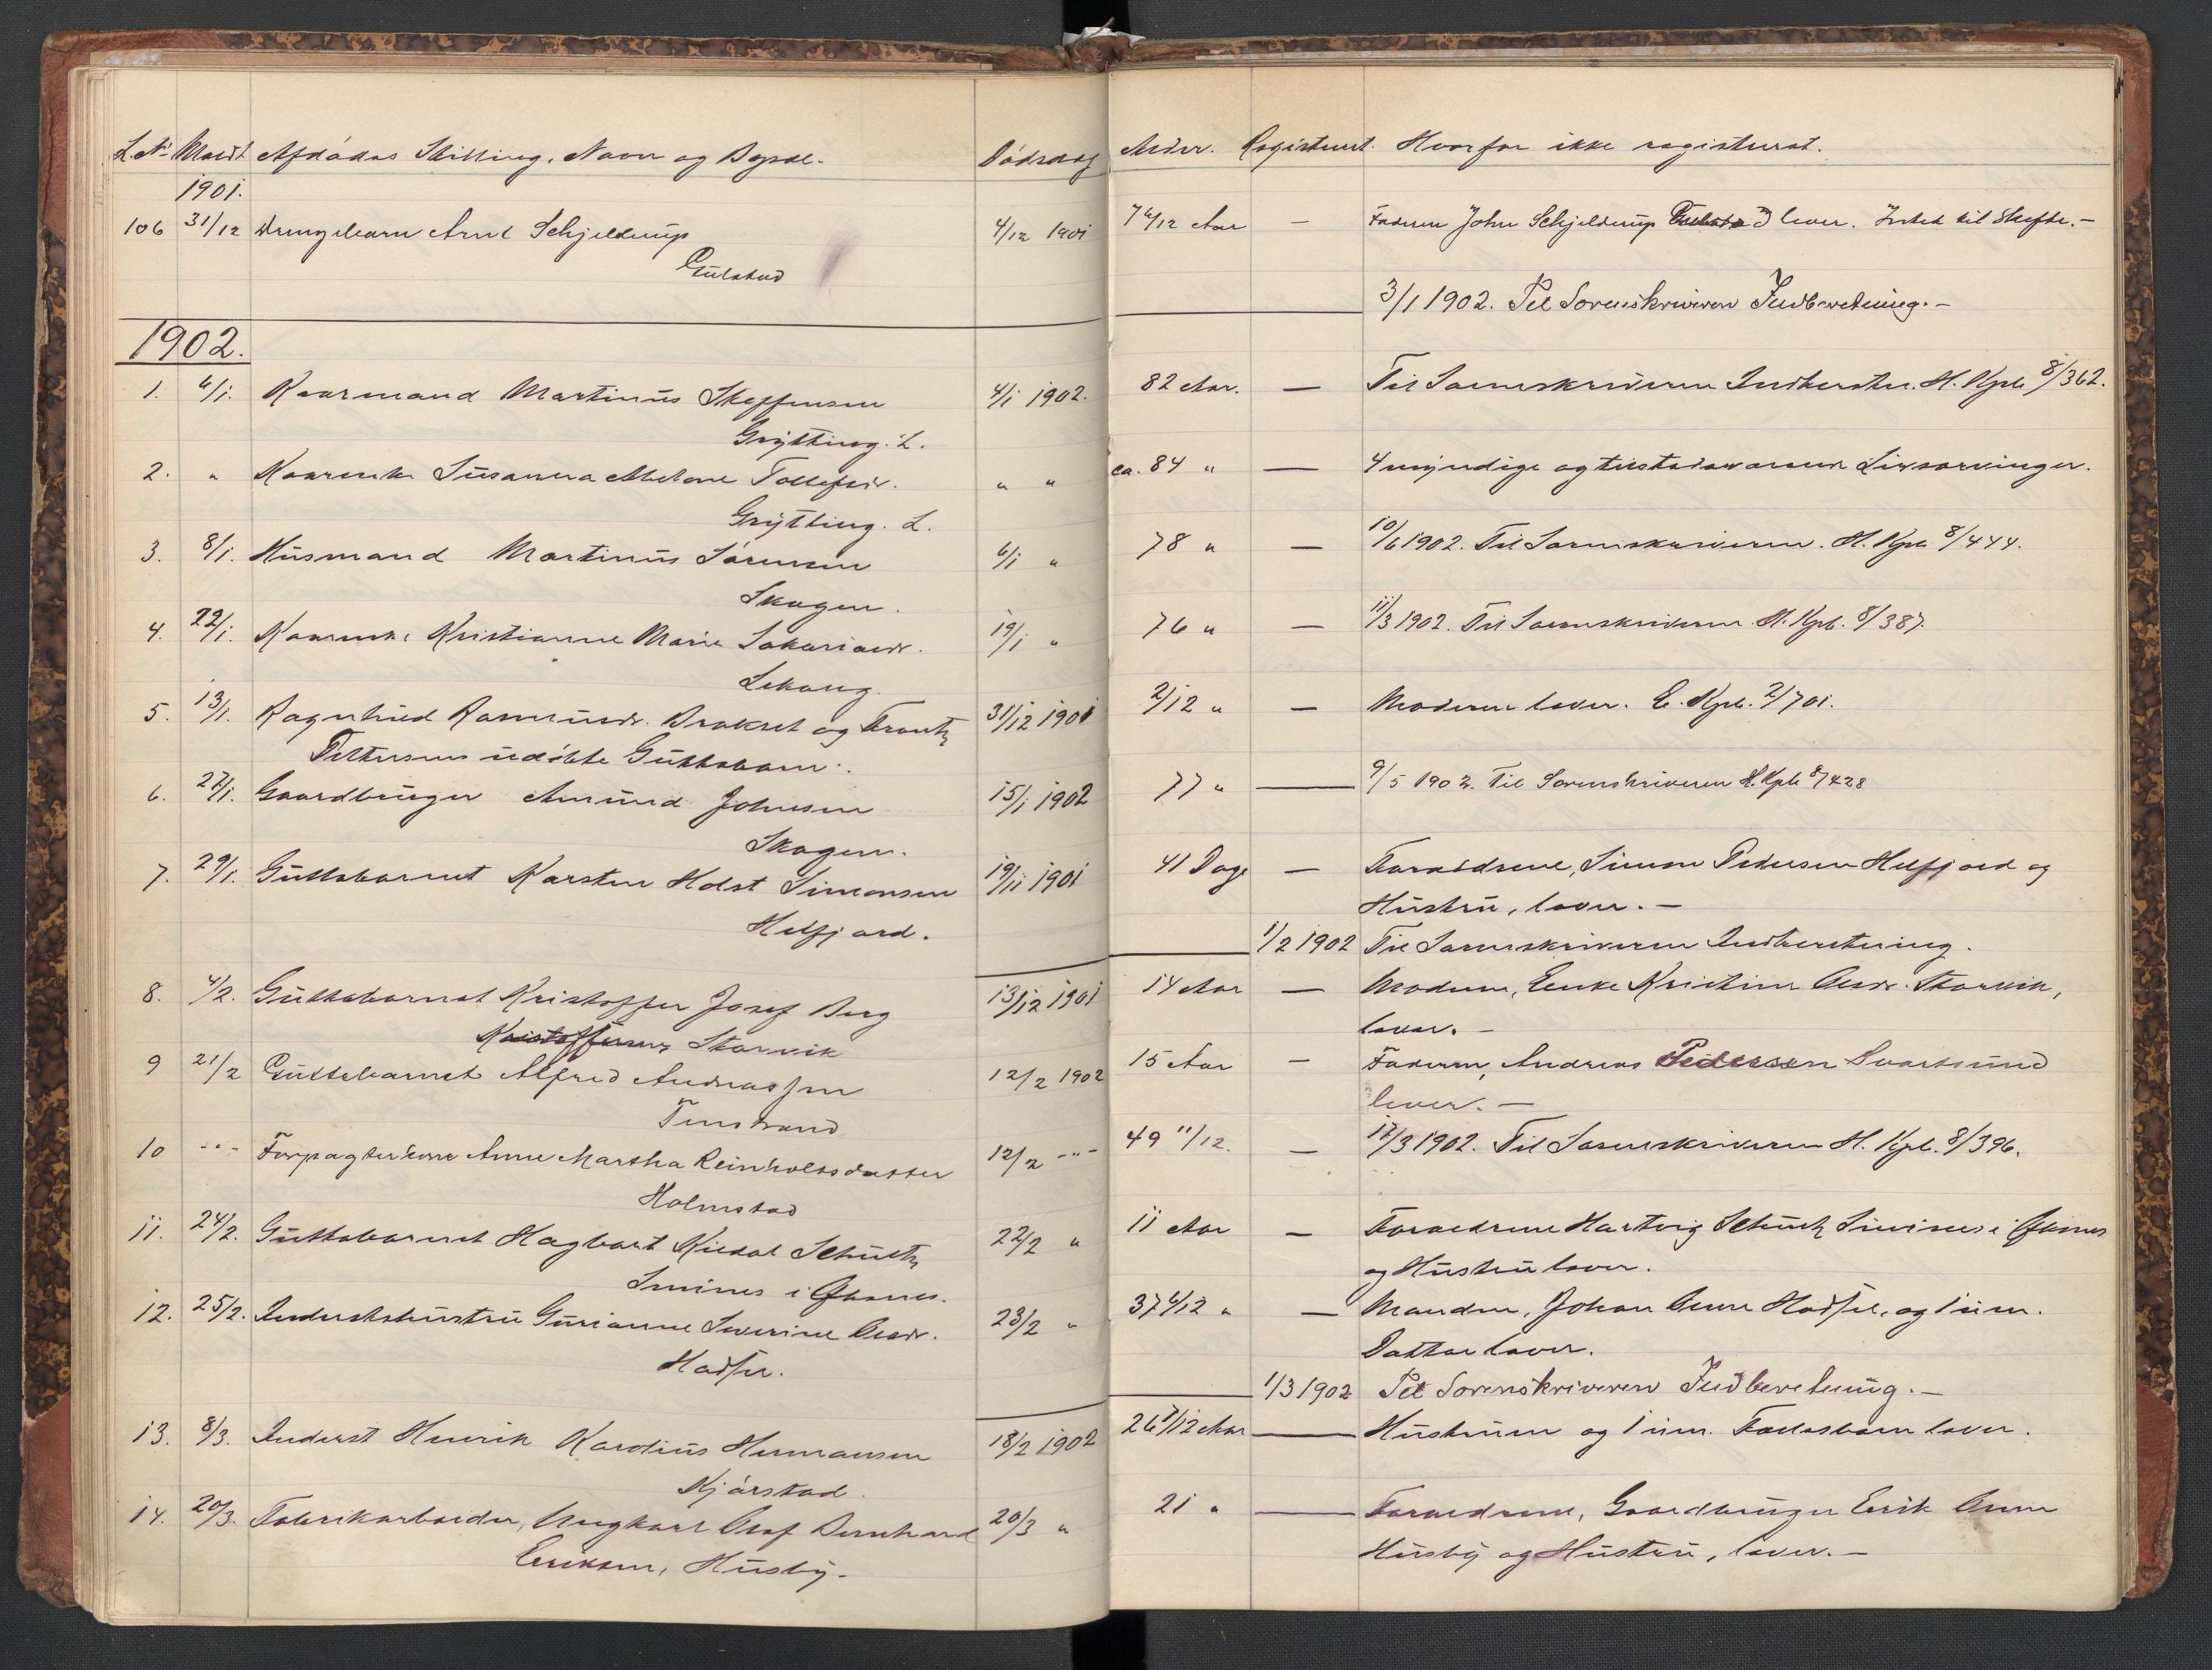 L.No Meldt Afdødes Stilling, Navn og Bopæl. Dødsdag Alder. Registreret. Hvorfor ikke registreret.
1901.
106 31/12 Drengebarn Arnt Schjelderup 4/12 1901 7 4/12 Aar — Faderen John Schjelderup lever. Intet til Skifte. —
Gulstad
3/1 1902. Til Sorenskriveren Indberetning. —
1902.
1. 6/1. Kaarmand Martinus Steffensen 4/1 1902. 82 Aar. — Til Sorenskriveren Indberetn. H. Kprt. 8/362.
Grytting. L.
2. " Kaarenke Susanna Tollefsdr. " " ca. 84 " — 4 myndige og tilstedeværende Livsarvinger.
Grytting. L.
3. 8/1. Husmand Martinus Sørensen 6/1 " 78 " — 10/6 1902. Til Sorenskriveren. H. Kprt. 8/444.
Skagen.
4. 22/1. Kaarenke Kristianne Marie Sakariasdr. 19/1 " 76 " — 11/3 1902. Til Sorenskriveren H. Kprt. 8/387.
Lekang.
5. 13/1. Ragnhild Rasmusdr. Brakset og Frantz 31/12 1901 2/12 " — Moderen lever. E. Kprt. 2/701.
Pettersens udøbte Guttebarn.
6. 27/1. Gaardbruger Amund Johnsen 15/1 1902 77 " — 9/5 1902. Til Sorenskriveren H. Kprt. 8/428
Skagen.
7. 29/1. Guttebarnet Karsten Holst Simonsen 19/11 1901 41 Dage — Forældrene, Simon Pedersen Helfjord og
Helfjord. Hustru, lever. —
1/2 1902 Til Sorenskriveren Indberetning.
8. 4/2. Guttebarnet Kristoffer Josef Berg 13/12 1901 14 Aar — Moderen, Enke Kristine Olsdr. Storvik,
Kristoffersen Storvik lever. —
9 21/2 Guttebarnet Alfred Andreassen 12/2 1902 15 Aar — Faderen, Andreas Pedersen Svartsund
Finstrand lever. —
10 -"- Forpagterkone Anne Martha Reinholtsdatter 12/2 -"- 49 11/12. — 17/3 1902. Til Sorenskriveren H. Kprt. 8/396.
Holmstad
11. 24/2. Guttebarnet Hagbart Kildal Schultz 22/2 " 11 Aar — Forældrene Hartvig Schultz Smines i Øksnes
Smines i Øksnes. og Hustru lever.
12. 25/2. Inderstshustru Gurianne Severine Olsdr. 23/2 " 37 4/12 " — Manden, Johan Olsen Hadsel, og 1 um.
Hadsel. Datter lever.
1/3 1902 Til Sorenskriveren Indberetning. —
13. 8/3. Inderst Henrik Kardius Hermansen 18/2 1902 26 7/12 Aar — Hustruen og 1 um. Fællesbarn lever.
Kjørstad.
14. 20/3. Fabrikarbeider, Olaf Bernhard 20/3 " 21 " — Forældrene, Gaardbruger Erik Olsen
Eriksen, Husby. Husby og Hustru, lever. —